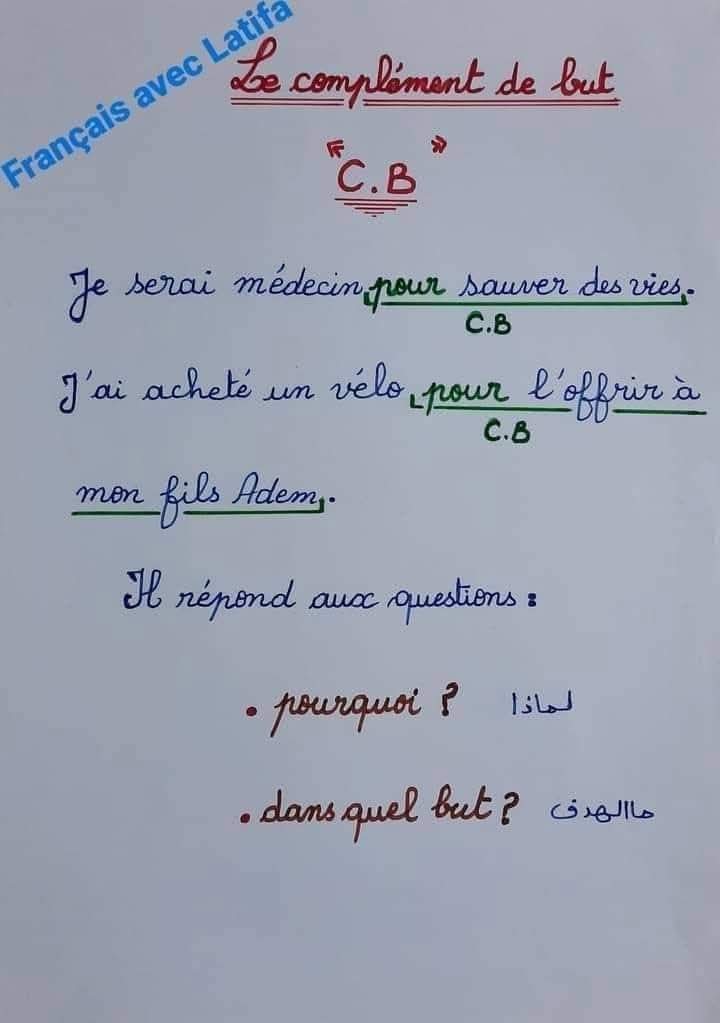 Français avec Latifa
Le complément de but
« C.B »
Je serai médecin pour sauver des vies.
C.B
J'ai acheté un vélo pour l'offrir à
C.B
mon fils Adem.
Il répond aux questions :
• pourquoi ? لماذا
• dans quel but ? ماالهدف